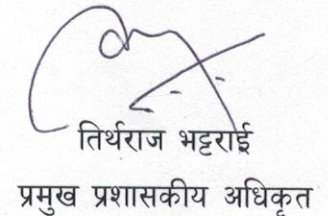 तिर्थराज भट्टराई
प्रमुख प्रशासकीय अधिकृत